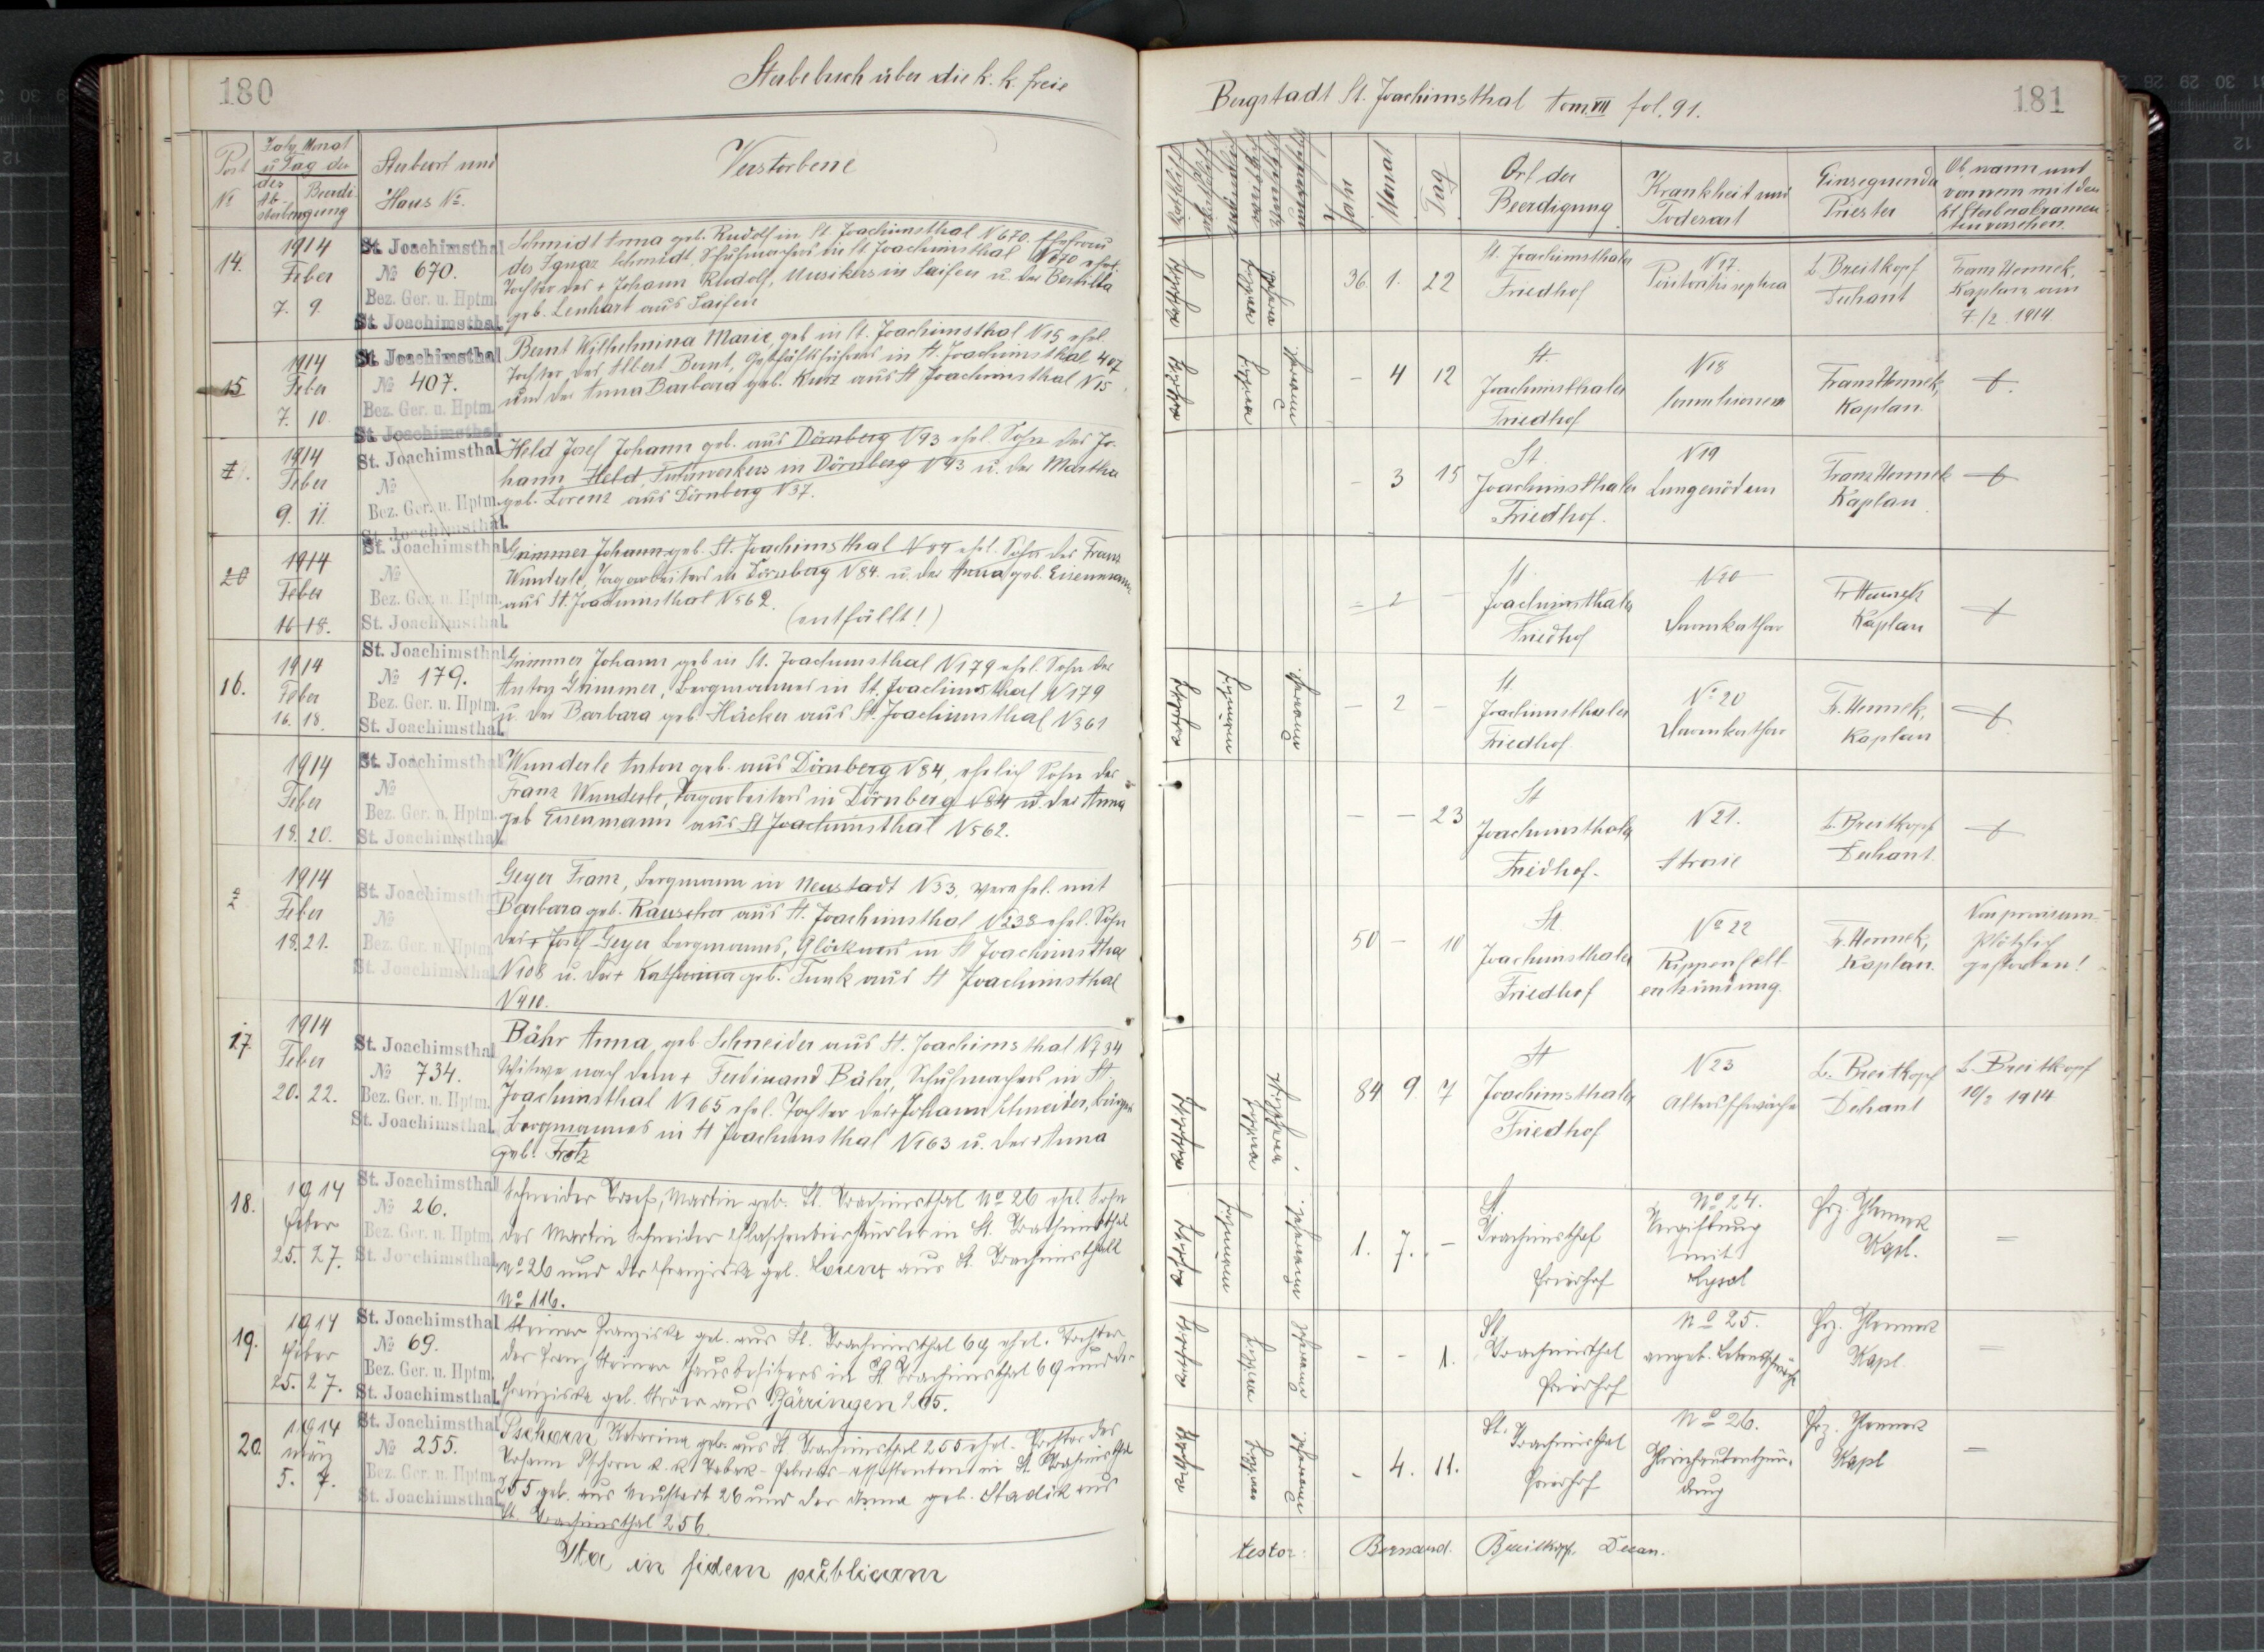 180
Sterbebuch über die k. k. freie
Post
№
Jahr, Monat
u. Tag der
des
Ab-
sterbens
Beerdi
gung
Sterbeort und
Haus №.
Verstorbene
14.
1914
Feber
7. 9.
St. Joachimsthal
№ 670.
Bez. Ger. u. Hptm.
St. Joachimsthal.
Schmidt Anna geb. Rudolf in St. Joachimsthal N 670. Ehefrau
des Ignaz Schmidt, Schuhmachers in St. Joachimsthal N 670 ehel.
Tochter des + Johann Rudolf, Musikers in Saifen u. der
geb. Lenhart aus Saifen
15
1914
Feber
7. 10.
St. Joachimsthal
№ 407.
Bez. Ger. u. Hptm.
St. Joachimsthal.
Bernt Wilhelmina Marie geb in St. Joachimsthal N 15 ehel.
Tochter des Albert Bernt, in St. Joachimsthal 407
und der Anna Barbara geb. Kurz aus St Joachimsthal N 15
1914
Feber
9. 11.
St. Joachimsthal
№
Bez. Ger. u. Hptm.
St. Joachimsthal.
Held Josef Johann geb. aus Dörnberg N 93 ehel. Sohn des Jo-
hann Held, Fuhrwerkers in Dörnberg N 93 u. der Martha
geb. Lorenz aus Dörnberg N 37.
20
1914
Feber
16. 18.
St. Joachimsthal
№
Bez. Ger. u. Hptm.
St. Joachimsthal.
Grimmer Johann geb. St. Joachimsthal ehel. Sohn des Franz
Wunderle, Tagarbeiters in Dörnberg N 84. u. der Anna geb. Eisenmann
aus St. Joachimsthal N 562.
(entfällt!)
16.
1914
Feber
16. 18.
St. Joachimsthal
№ 179.
Bez. Ger. u. Hptm.
St. Joachimsthal.
Grimmer Johann geb in St. Joachimsthal N 179 ehel. Sohn des
Anton Grimmer, Bergmannes in St. Joachimsthal N 179
u. der Barbara geb. Häcker aus St. Joachimsthal N 361
1914
Feber
18. 20.
St. Joachimsthal
№
Bez. Ger. u. Hptm.
St. Joachimsthal.
Wunderle Anton geb. aus Dörnberg N 84, ehelich Sohn des
Franz Wunderle, Tagarbeiters in Dörnberg N 84 u. der Anna
geb Eisenmann aus St Joachimsthal N 562.
1914
Feber
18. 21.
St. Joachimsthal
№
Bez. Ger. u. Hptm.
St. Joachimsthal
Geyer Franz, Bergmann in Neustadt N 33, verehel. mit
Barbara geb. Rauscher aus St. Joachimsthal N 238 ehel. Sohn
des + Josef Geyer Bergmanns, Glöckners in St Joachimsthal
N 108 u. der + Katharina geb. Funk aus St Joachimsthal
N 410.
17.
1914
Feber
20. 22.
St. Joachimsthal
№ 734.
Bez. Ger. u. Hptm.
St. Joachimsthal.
Bähr Anna, geb Schneider aus St. Joachimsthal N 734
Witwe nach dem + Ferdinand Bähr, Schuhmachers in St
Joachimsthal N 165 ehel. Tochter des + Johann Schneider, bürgl.
Bergmannes in St Joachimsthal N 163 u. der + Anna
geb.
18.
1914
Feber
25. 27.
St. Joachimsthal
№ 26.
Bez. Ger. u. Hptm.
St. Joachimsthal.
Schneider Josef, Martin geb. St. Joachimsthal No 26 ehel. Sohn
des Martin Schneider Flaschenbierhändler in St. Joachimsthal
No 26 und der Franziska geb. Lorenz aus St. Joachimsthal
No 116.
19.
1914
Feber
25. 27.
St. Joachimsthal
№ 69.
Bez. Ger. u. Hptm.
St. Joachimsthal.
Franziska geb. aus St. Joachimsthal 69 ehel. Tochter
des Franz Hausbesitzers in St. Joachimsthal 69 und der
Franziska geb. aus Bärringen 205.
20.
1914
März
5. 7.
St. Joachimsthal
№ 255.
Bez. Ger. u. Hptm.
St. Joachimsthal.
Pschorn Katarina geb. aus St. Joachimsthal 255 ehel. Tochter des
Johann Pschorn k. k. Tabak-Fabriks- in St. Joachimsthal
255 geb. aus Neustadt 26 und der Anna geb. Stadik aus
St. Joachimsthal 256.
Ita in fidem publicam
Bergstadt St. Joachimsthal tom. VII fol. 91.
181
Jahr
Monat
Tag
Ort der
Beerdigung
Krankheit und
Todesart
Einsegnende
Priester
Ob, wann und
von wem mit den
hl. Sterbesakramen
ten versehen.
36 1. 22
St. Joachimsthaler
Friedhof
N 17.
Peritonitis septica
B. Breitkopf
Dechant
Franz Hennek,
Kaplan am
7./2. 1914
- 4 12
St.
Joachimsthaler
Friedhof
N 18
Franz Hennek,
Kaplan.
- 3 15
St.
Joachimsthaler
Friedhof.
N 19
Lungenödem
Franz Hennek
Kaplan
- 2 -
St.
Joachimsthaler
Friedhof
N 20
Darmkatarrh
Fr. Hennek
Kaplan
- 2 -
St.
Joachimsthaler
Friedhof.
No 20
Darmkatarrh
Fr. Hennek,
Kaplan
- - 23
St
Joachimsthaler
Friedhof.
N 21.
Atrosie
B. Breitkopf
Dechant.
50 - 10
St.
Joachimsthaler
Friedhof
No 22
Rippenfell-
entzündung.
Fr. Hennek,
Kaplan.
Non provisum-
plötzlich
gestorben!
84 9. 7
St
Joachimsthaler
Friedhof
N 23
Altersschwäche
B. Breitkopf
Dechant
B. Breitkopf
10/2 1914
1. 7. -
St.
Joachimsthal
Friedhof
No 24.
Vergiftung
mit
Lysol
Frz. Hennek
Kapl.
- - 1.
St
Joachimsthal
Friedhof
No 25.
angeb. Lebensschwäche
Frz. Hennek
Kapl.
- 4. 11.
St. Joachimsthal
Friedhof
No 26.
Hirnhautentzün-
dung
Frz. Hennek
Kapl
testor: Bernard. Breitkopf, Decan.